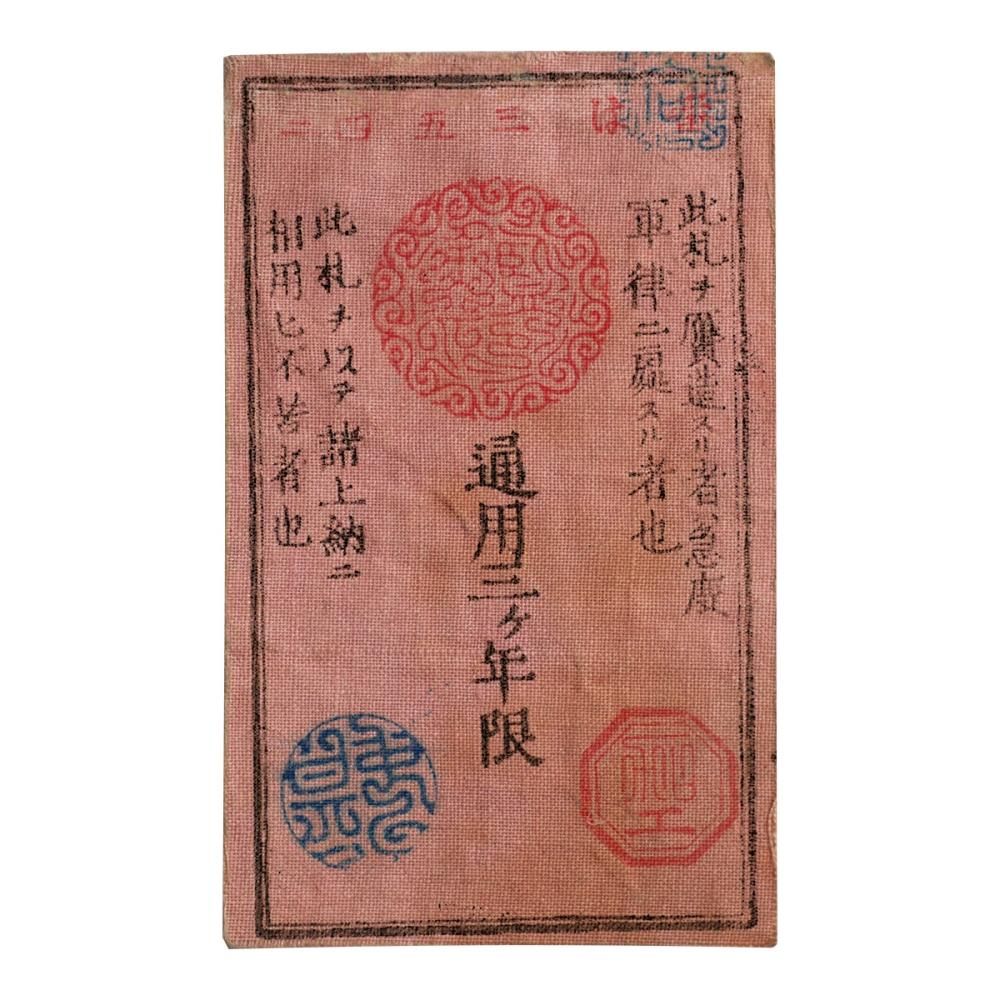 三五 二
此札ヲ贋造スル者ハ急度
軍律ニ處スル者也
通用三ヶ年限
此札ヲ以テ諸上納ニ
相用ヒ不苦者也